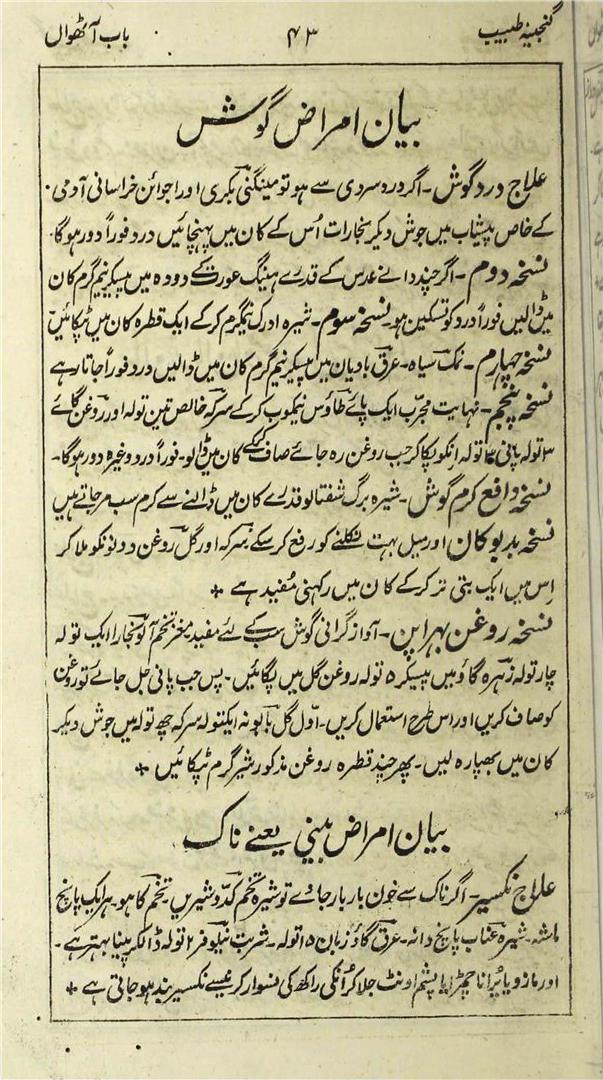 گنجینہ طبیب
۴۳
باب آٹھواں
بیان امراض گوش
علاج درد گوش۔ اگر درد سردی سے ہو تو مینگنی بکری اور اجوائن خراسانی آدمی
کے خاص پیشاب میں جوش دیکر بخارات اُس کے کان میں پہنچائیں درد فوراً دور ہوگا۔
نسخہ دوم۔ اگر چند دانے عدس کے قدرے ہینگ عورت کے دودہ میں پیسکر نیم گرم کان
میں ڈالیں فوراً درد کو تسکین ہو۔ نسخہ سوم۔ شیرہ ادرک نیم گرم کرکے ایک قطرہ کان میں ٹپکائیں
نسخہ چہارم۔ نمک سیاہ۔ عرق بادیان میں پیسکر نیم گرم کان میں ڈالیں درد فوراً جاتا رہے
نسخہ پنجم۔ نہایت مجرّب ایک پائے طاؤس نیمکوب کرکے سرکہ خالص تین تولہ اور روغن گائے
۳ تولہ پانی ۳ تولہ انکو پکا کر جب روغن رہ جائے صاف کرکے کان میں ڈالو۔ فوراً درد وغیرہ دور ہوگا۔
نسخہ دافع کرم گوش۔ شیرہ برگ شفتالو قدرے کان میں ڈالنے سے کرم سب مرجاتے ہیں
نسخہ بدبو کان اور میل بہت نکلنے کو رفع کرسکے سرکہ اور گل روغن دونونکو ملا کر
اِس میں ایک بتی تر کرکے کان میں رکہنی مُفید ہے +
نسخہ روغن بہراپن۔ آواز گرانی گوش سب کے لئے مفید مغز تخم آلو بخارا ایک تولہ
چار تولہ زہرہ گاؤ میں پیسکر ۵ تولہ روغن گل میں پکائیں۔ پس جب پانی جل جائے تو روغن
کو صاف کریں اور اس طرح استعمال کریں۔ اوّل گل بابونہ ایکتولہ سرکہ چھ تولہ میں جوش دیکر
کان میں بھپارہ لیں۔ پھر چند قطرہ روغن مذکور شیر گرم ٹپکائیں +
بیان امراض بینی یعنے ناک
علاج نکسیر۔ اگر ناک سے خون بار بار جاوے تو شیرہ تخم کدّو شیریں۔ تخم کاہو۔ ہر ایک پانچ
ماشہ۔ شیرہ عناب پانچ دانہ۔ عرق گاؤ زبان ۱۵ تولہ۔ شربت نیلوفر ۲ تولہ ڈالکر پینا بہتر ہے۔
اور مازو یا پُرانا چمڑا یا پشم اونٹ جلا کر اُنکی راکھ کی نسوار کرنیسے نکسیر بند ہوجاتی ہے +